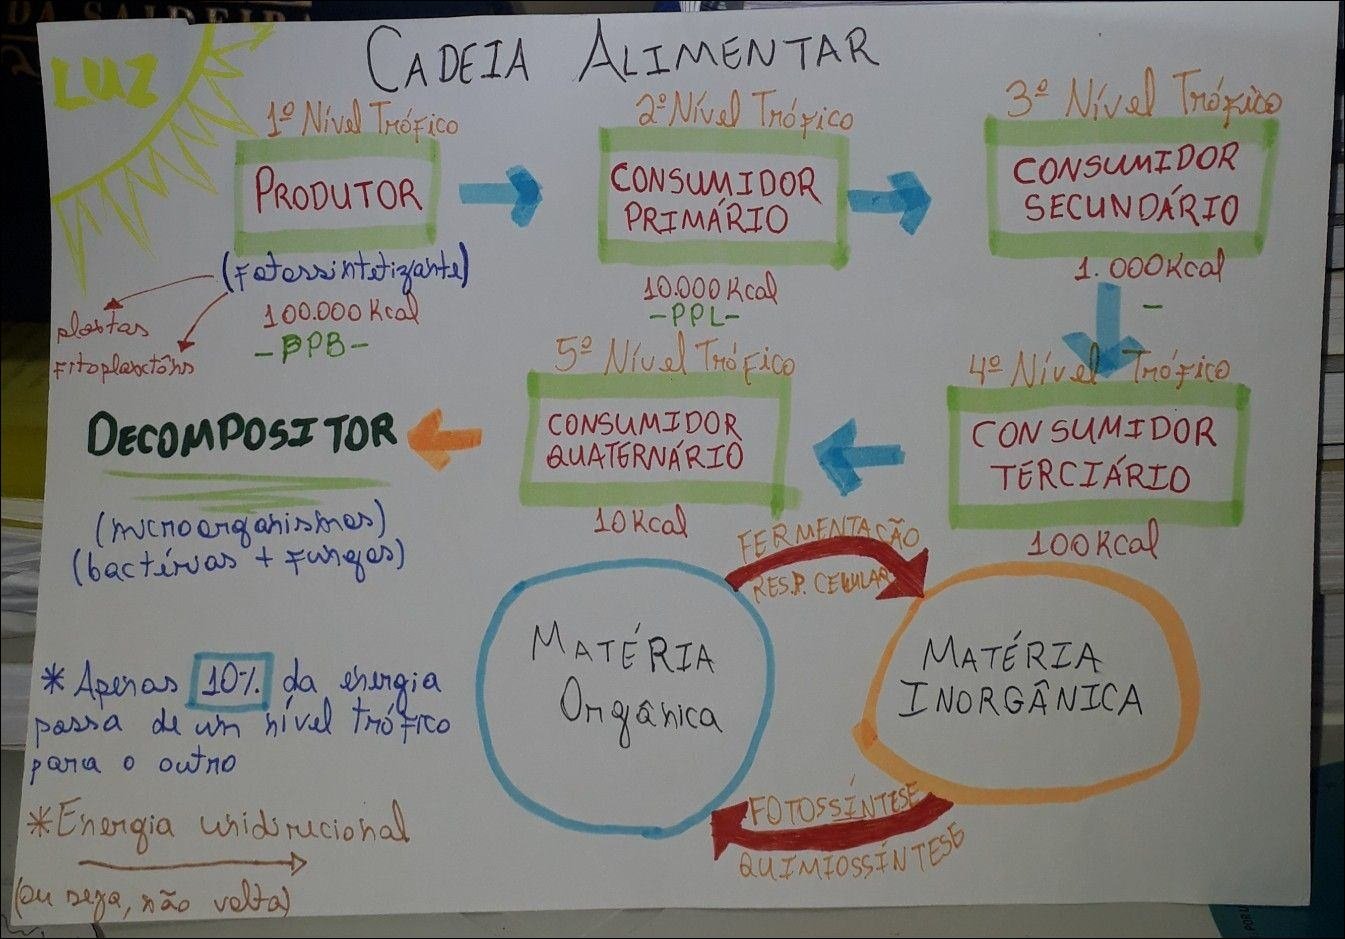 DA SAIDEIRA
LUZ
CADEIA ALIMENTAR
1º Nível Trófico
PRODUTOR
(Fotossintetizante)
100.000 Kcal
-PPB-
plantas
Fitoplanctôns
2º Nível Trófico
CONSUMIDOR
PRIMÁRIO
10.000 Kcal
-PPL-
3º Nível Trófico
CONSUMIDOR
SECUNDÁRIO
1.000 Kcal
-
4º Nível Trófico
CONSUMIDOR
TERCIÁRIO
100 Kcal
5º Nível Trófico
CONSUMIDOR
QUATERNÁRIO
10 Kcal
DECOMPOSITOR
(microorganismos)
(bactérias + Fungos)
* Apenas 10% da energia
passa de um nível trófico
para o outro
* Energia unidirecional
(ou seja, não volta)
FERMENTAÇÃO
RESP. CELULAR
MATÉRIA
Orgânica
MATÉRIA
INORGÂNICA
FOTOSSÍNTESE
QUIMIOSSÍNTESE